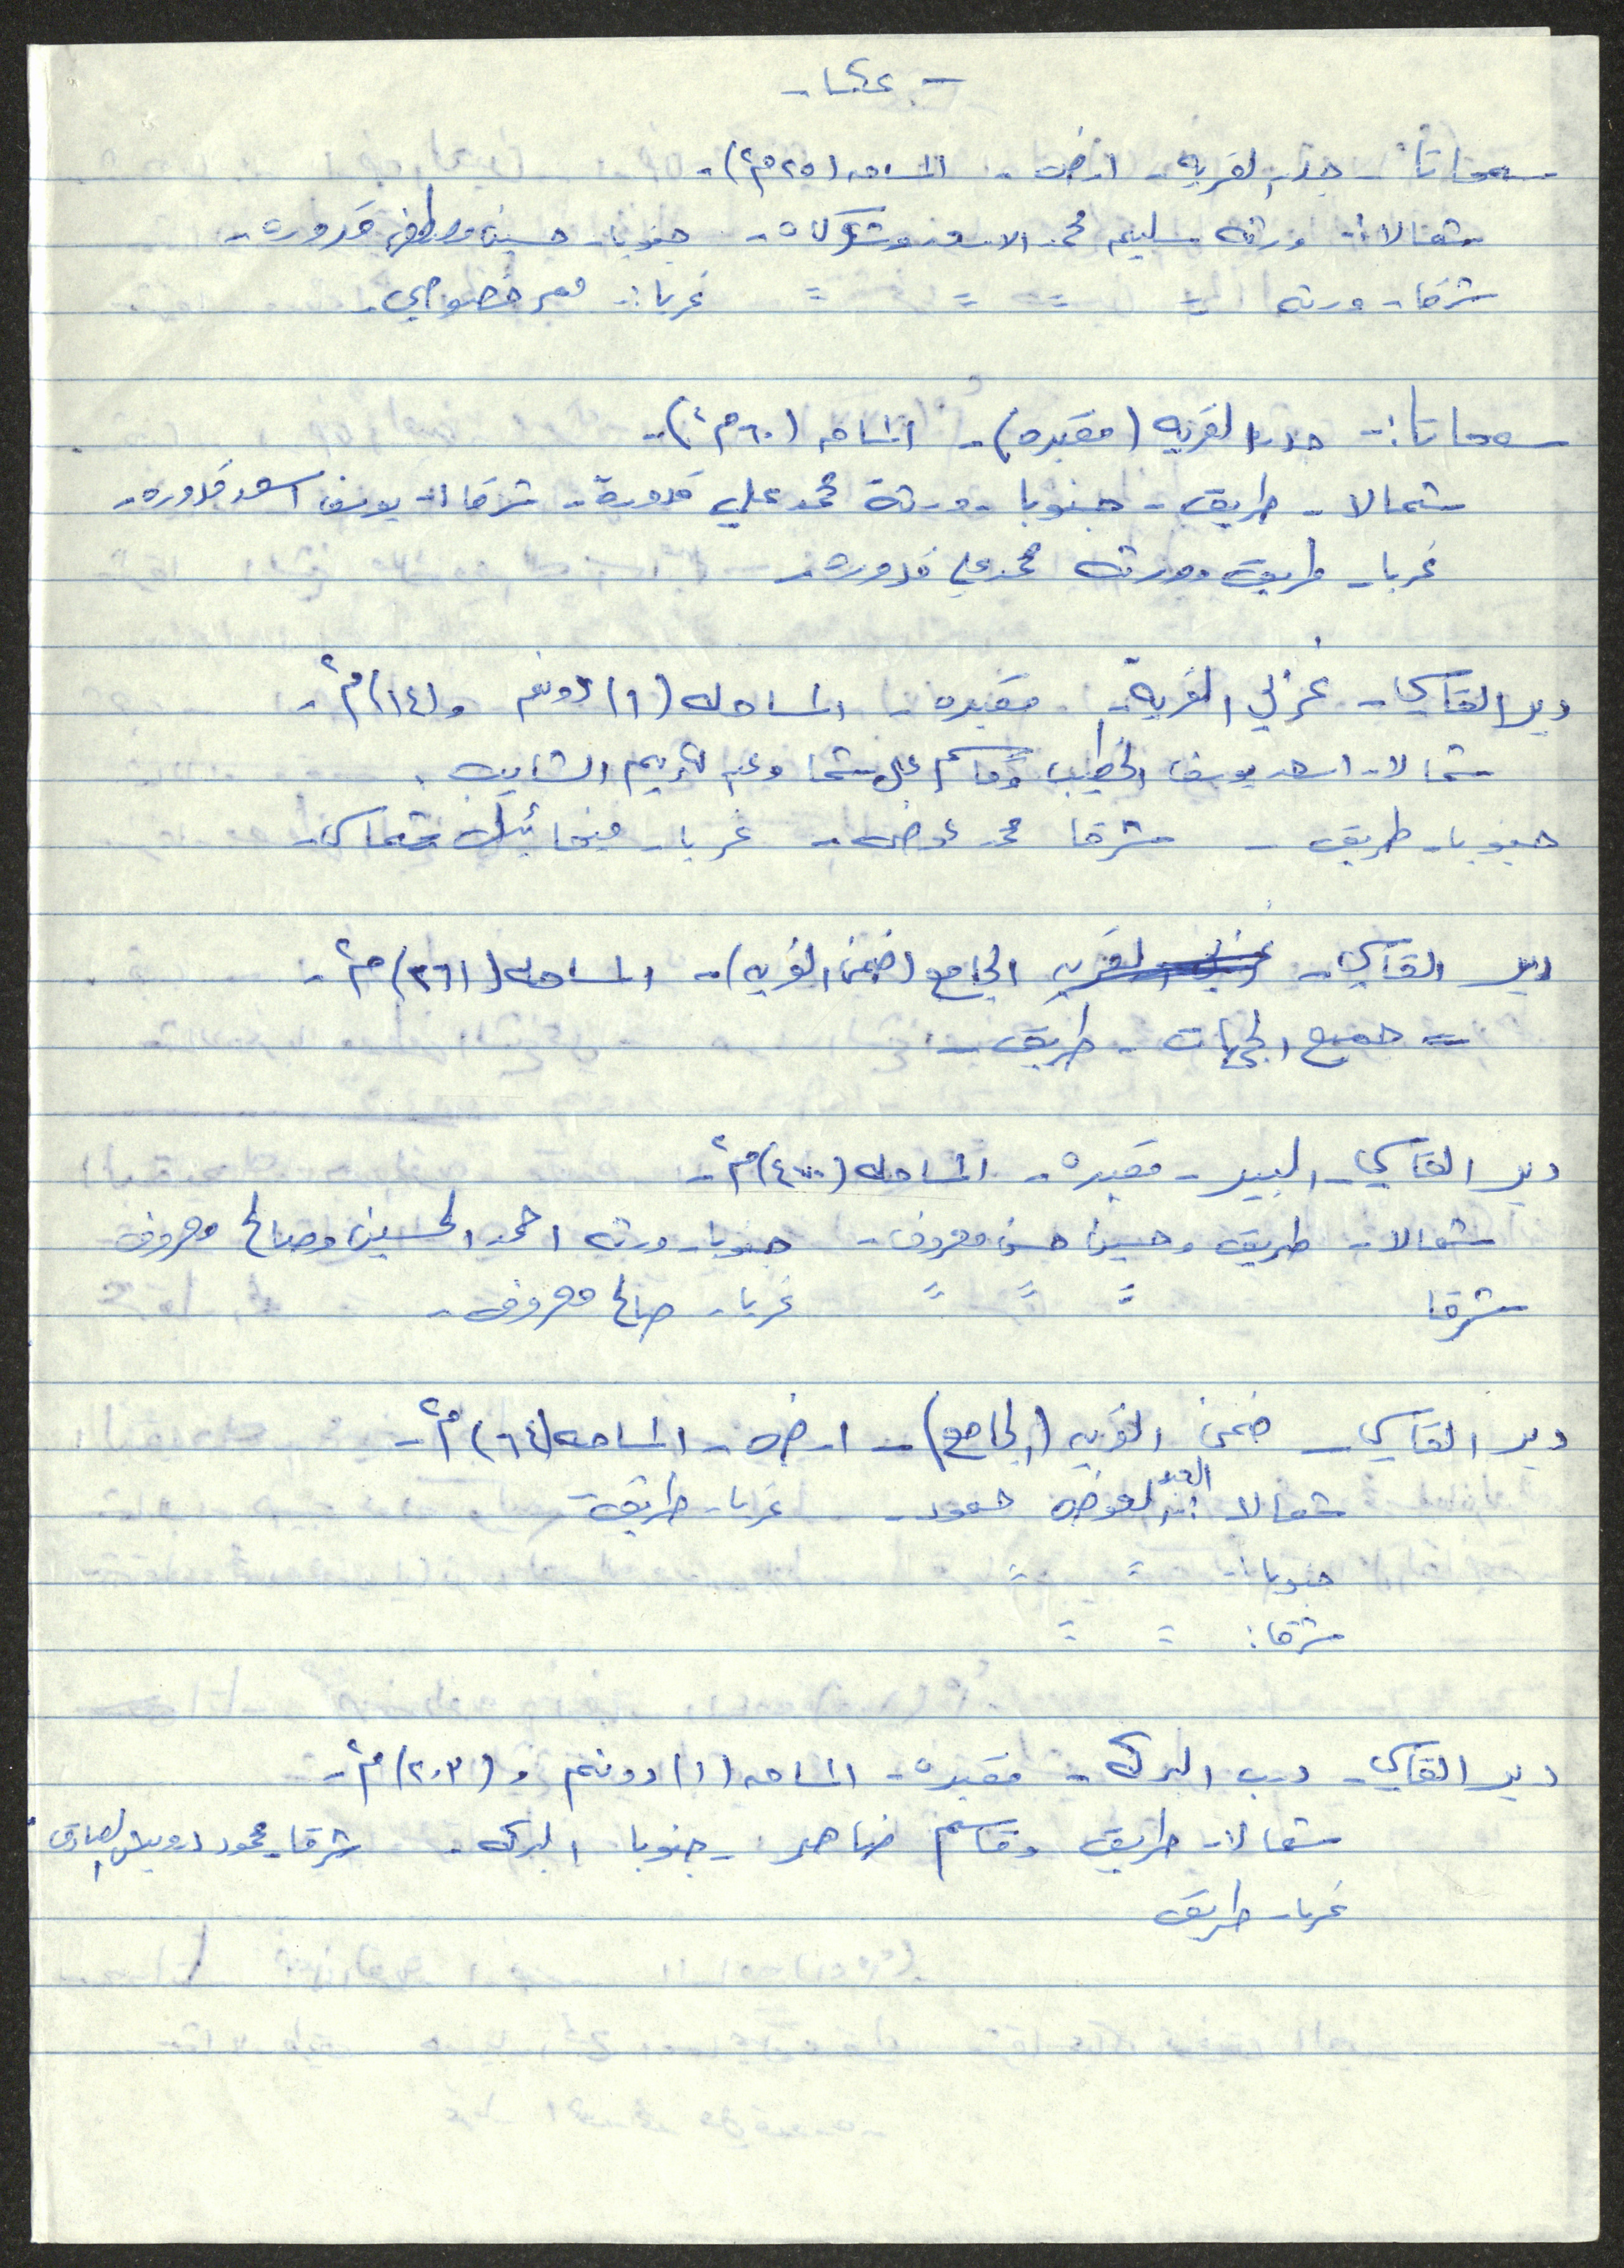 - عكا -
سحماتا - جدر القرية - ارض - المساحه (٢٥ م٢) -
شمالا :- ورثه سليم محمد الاسعد وشركاه - جنوبا - حسين مصطفى قدوره -
شرقا - ورثه = = = = غربا :- ممر خصوصي -
سحماتا :- جدر القريه (مقبره) - المساحه (٦٠ م٢) -
شمالا - طريق - جنوبا - ورثة محمد علي قدورة - شرقا :- يوسف اسعد قدوره -
غربا - طريق وورثه محمد علي قدوره -
دير القاسي - غربي القرية - مقبره - المساحه (٦) دونم و (١٤) م٢ -
شمالا - اسعد يوسف الخطيب وقاسم علي شما وعبد الكريم الشايب .
جنوبا - طريق - شرقا محمد عوض - غربا - ميخائيل شماس -
دير القاسي - الجامع (ضمن القريه) - المساحه (٣٦١) م٢ -
= جميع الجهات - طريق -
دير القاسي - البير - مقبره - المساحه (٤٠٠) م٢ -
شمالا - طريق وحسين حسن معروف - جنوبا - ورثه احمد الحسين وصالح معروف
شرقا = = = غربا - صالح معروف -
دير القاسي - ضمن القريه (الجامع) - ارض - المساحه (٦٤) م٢ -
شمالا :- العبد العوض حمود - غربا - طريق -
جنوبا :- = =
شرقا : = =
دير القاسي - درب البركه - مقبره - المساحه (١) دونم و (٢٠٣) م٢ -
شمالا - طريق وقاسم ضاهر - جنوبا البركه - شرقا - محمود درويش الصادق
غربا - طريق